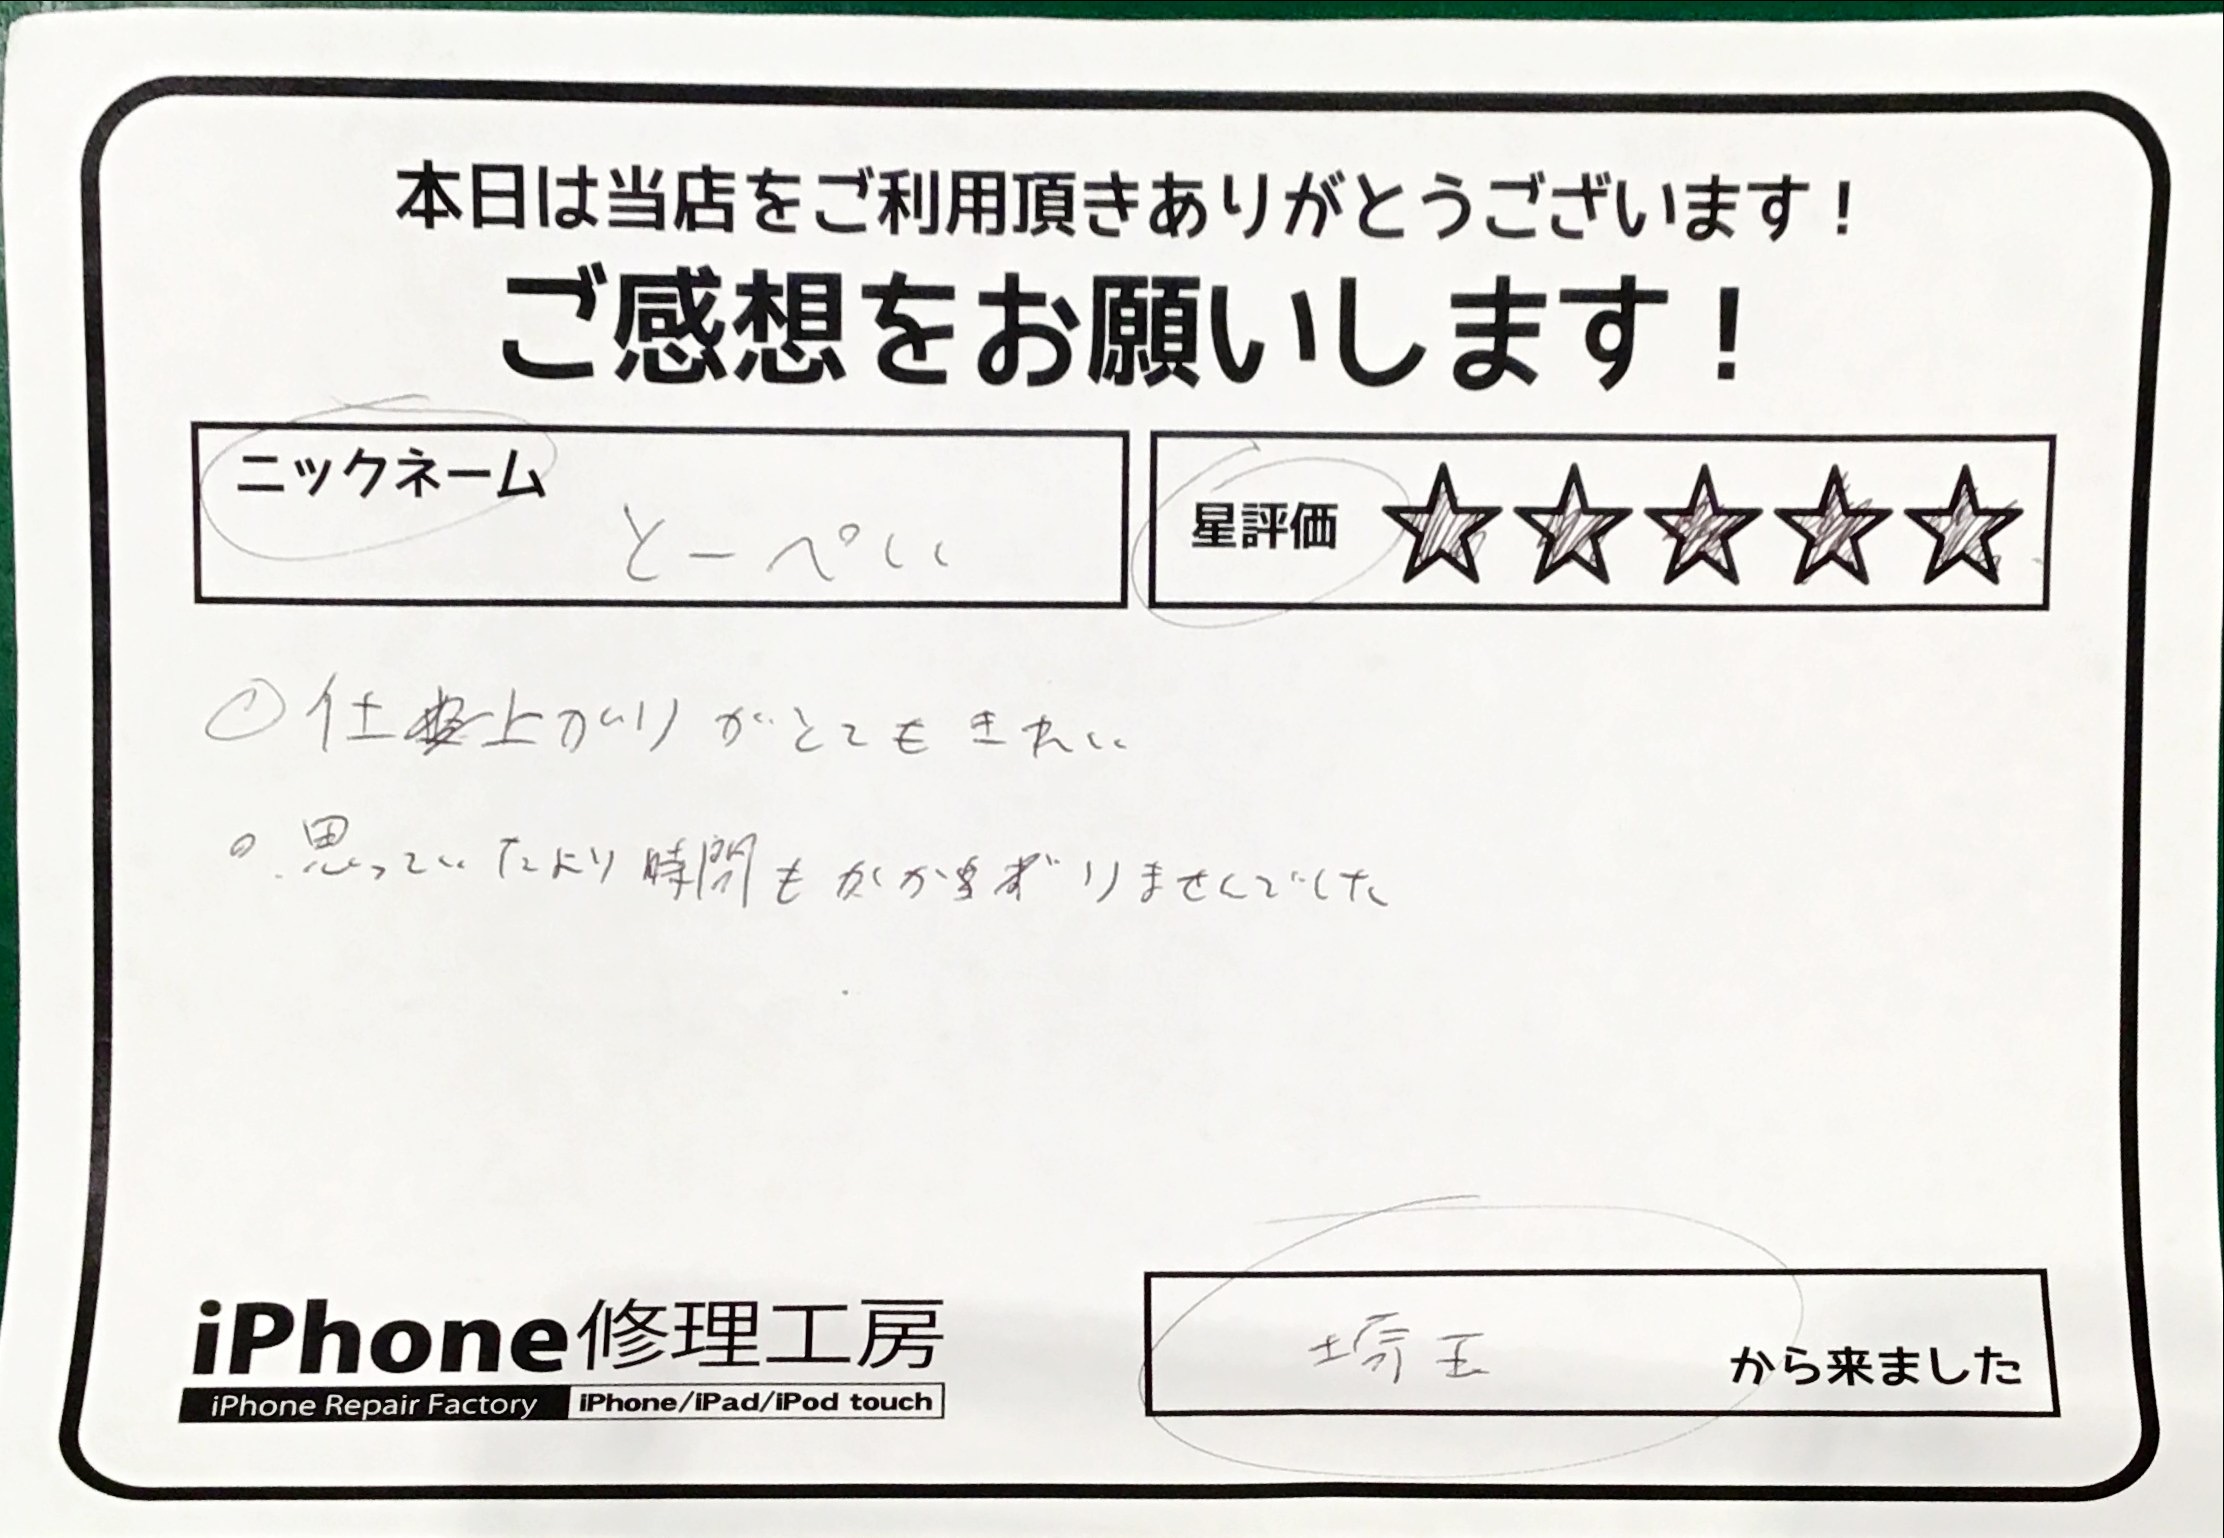 本日は当店をご利用頂きありがとうございます！
ご感想をお願いします！
ニックネーム
とーぺい
星評価 ★★★★★
① 仕上がりがとてもきれい
。思っていたより時間もかかりませんでした
iPhone修理工房
iPhone Repair Factory iPhone/iPad/iPod touch
埼玉 から来ました